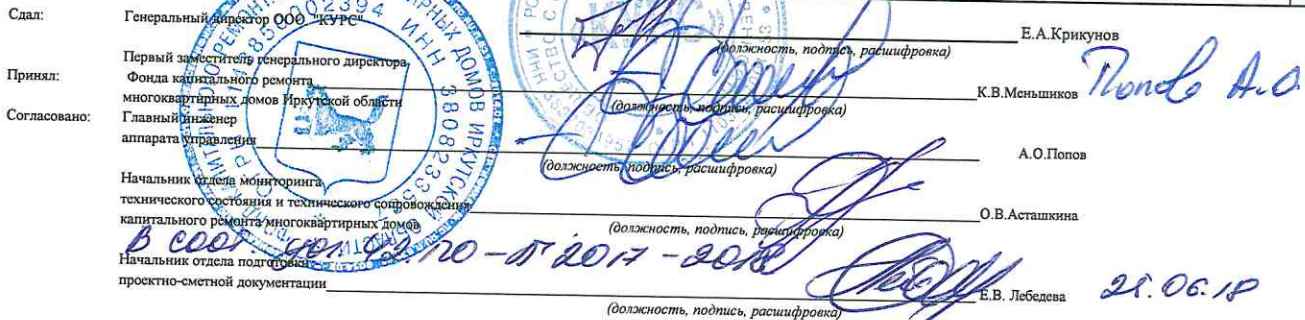 Сдал: Генеральный директор ООО "КУРС" Е.А.Крикунов
(должность, подпись, расшифровка)
Первый заместитель генерального директора
Принял: Фонда капитального ремонта К.В.Меньшиков Попов А.О.
многоквартирных домов Иркутской области (должность, подпись, расшифровка)
Согласовано: Главный инженер
аппарата управления А.О.Попов
(должность, подпись, расшифровка)
Начальник отдела мониторинга
технического состояния и технического сопровождения О.В.Асташкина
капитального ремонта многоквартирных домов (должность, подпись, расшифровка)
В соот 2017 - 2018
Начальник отдела подготовки
проектно-сметной документации Е.В. Лебедева
(должность, подпись, расшифровка)
КАПИТАЛЬНОГО РЕМОНТА МНОГОКВАРТИРНЫХ ДОМОВ ИРКУТСКОЙ ОБЛАСТИ
ИНН